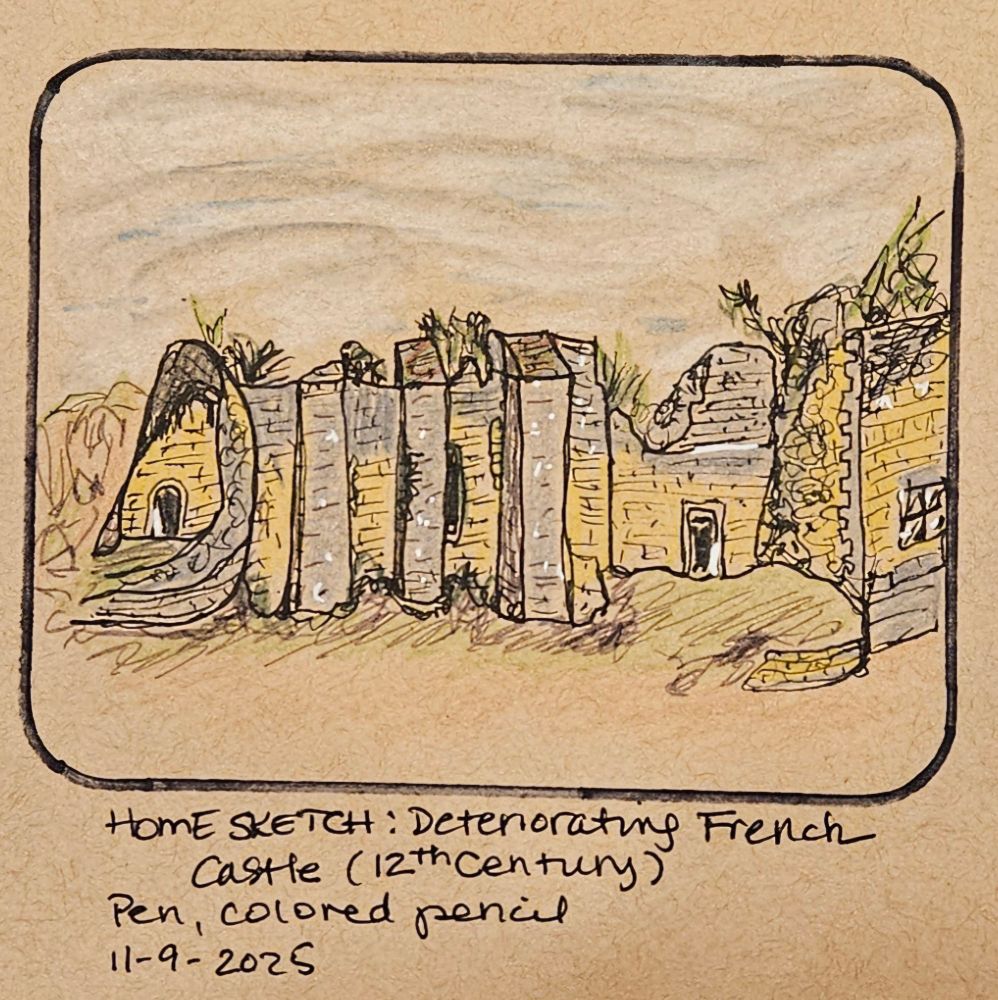 HOME SKETCH: Deteriorating French
Castle (12th Century)
Pen, colored pencil
11-9-2025